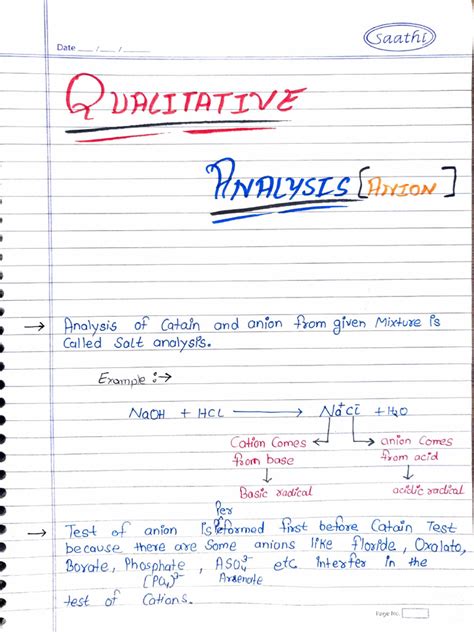 Date __/__/____
Saathi
QUALITATIVE
ANALYSIS [ANION]
→ Analysis of Catain and anion from given Mixture is
Called Salt analysis.
Example :→
NaOH + HCL ⟶ Na⁺Cl⁻ + H₂O
Cation Comes
from base
anion Comes
from acid
Basic radical
acidic radical
per
→ Test of anion is formed first before Catain Test
because there are Some anions like floride, Oxalato,
Borate, Phosphate, ASO₄³⁻ etc Interfer in the
[PO₄]³⁻ Arsenate
test of Cations.
Page No.